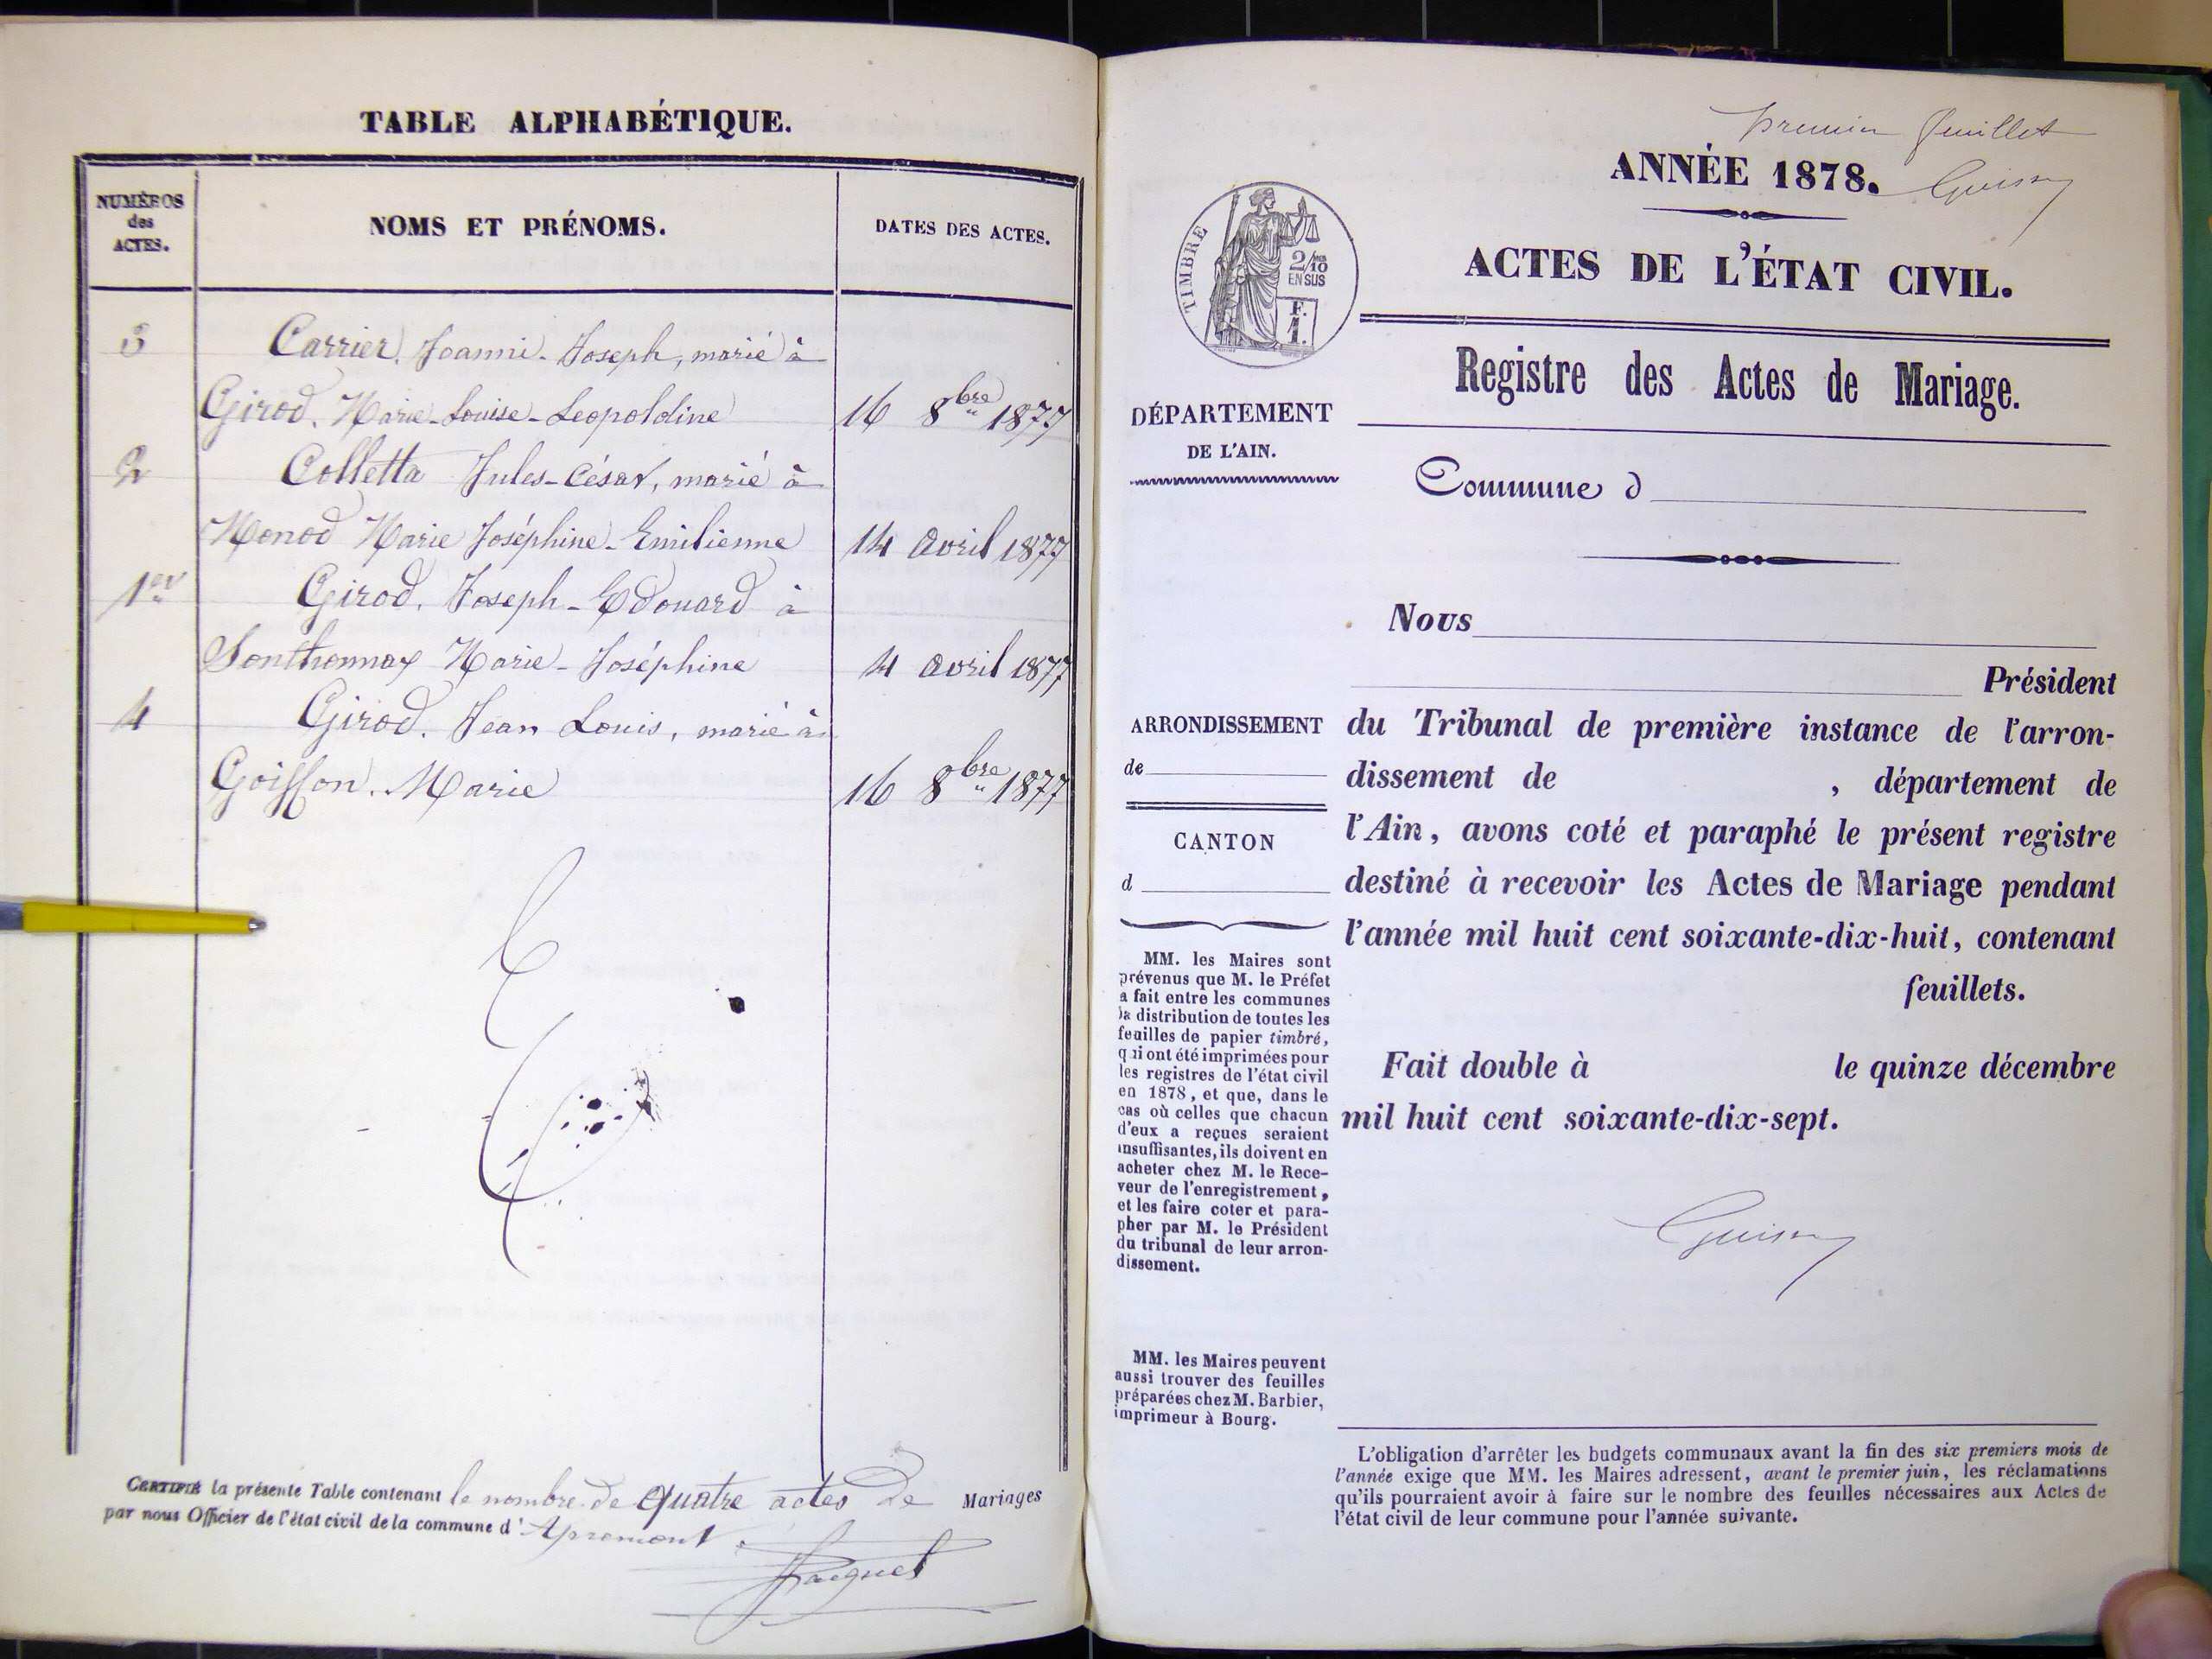 TABLE ALPHABÉTIQUE.
NUMÉROS
des
ACTES.
NOMS ET PRÉNOMS.
DATES DES ACTES.
3 Carrier, Joanni-Joseph, marié à
Girod, Marie-Louise-Leopoldine 16 8bre 1877
2 Colletta Jules-César, marié à
Monod Marie Joséphine-Emilienne 14 avril 1877
1er Girod, Joseph-Edouard à
Sonthonnax Marie-Joséphine 4 avril 1877
4 Girod, Jean Louis, marié à
Goiffon, Marie 16 8bre 1877
CERTIFIÉ la présente Table contenant le nombre de quatre actes de Mariages
par nous Officier de l'état civil de la commune d'Apremont
premier feuillet
ANNÉE 1878.
TIMBRE
2/10
EN SUS
F.
1.
ACTES DE L'ÉTAT CIVIL.
Registre des Actes de Mariage.
DÉPARTEMENT
DE L'AIN.
Commune d
Nous
Président
ARRONDISSEMENT
de
CANTON
d
du Tribunal de première instance de l'arron-
dissement de , département de
l'Ain, avons coté et paraphé le présent registre
destiné à recevoir les Actes de Mariage pendant
l'année mil huit cent soixante-dix-huit, contenant
feuillets.
Fait double à le quinze décembre
mil huit cent soixante-dix-sept.
MM. les Maires sont
prévenus que M. le Préfet
a fait entre les communes
la distribution de toutes les
feuilles de papier timbré,
qui ont été imprimées pour
les registres de l'état civil
en 1878, et que, dans le
cas où celles que chacun
d'eux a reçues seraient
insuffisantes, ils doivent en
acheter chez M. le Rece-
veur de l'enregistrement,
et les faire coter et para-
pher par M. le Président
du tribunal de leur arron-
dissement.
MM. les Maires peuvent
aussi trouver des feuilles
préparées chez M. Barbier,
imprimeur à Bourg.
L'obligation d'arrêter les budgets communaux avant la fin des six premiers mois de
l'année exige que MM. les Maires adressent, avant le premier juin, les réclamations
qu'ils pourraient avoir à faire sur le nombre des feuilles nécessaires aux Actes de
l'état civil de leur commune pour l'année suivante.